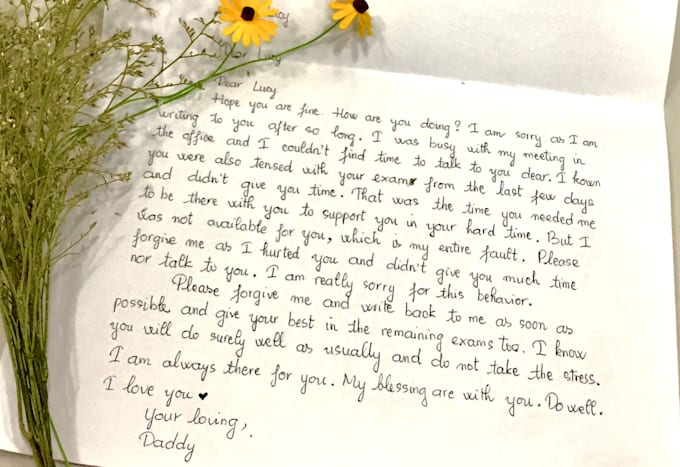 Lucy
Dear Lucy
Dear Lucy
Hope you are fine. How are you doing? I am sorry as I am
writing to you after so long. I was busy with my meeting in
the office and I couldn't find time to talk to you dear. I kown
you were also tensed with your exams from the last few days
and didn't give you time. That was the time you needed me
to be there with you to support you in your hard time. But I
was not available for you, which is my entire fault. Please
forgive me as I hurted you and didn't give you much time
nor talk to you. I am really sorry for this behavior.
Please forgive me and write back to me as soon as
possible and give your best in the remaining exams too. I know
you will do surely well as usually and do not take the stress.
I am always there for you. My blessing are with you. Do well.
I love you ♥
Your loving,.
Daddy